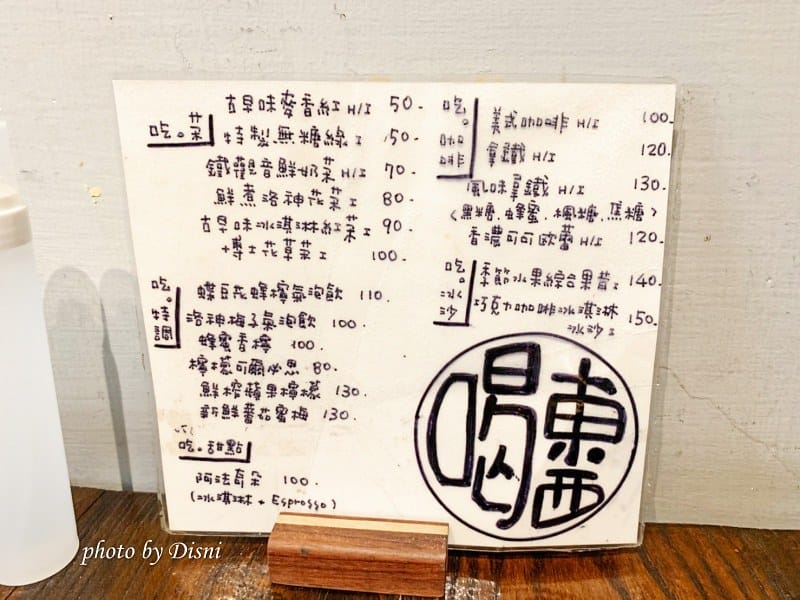 吃。茶
古早味麥香紅 H/I 50.
特製無糖綠 I 50.
鐵觀音鮮奶茶 H/I 70.
鮮煮洛神花茶 I 80.
古早味冰淇淋紅茶 I 90.
博士花草茶 I 100.
吃。特調
蝶豆花蜂檸氣泡飲 110.
洛神梅子氣泡飲 100.
蜂蜜香檸 100.
檸檬可爾必思 80.
鮮榨蘋果檸檬 130.
新鮮蕃茄蜜梅 130.
吃。甜點
阿法奇朵 100.
(冰淇淋 + Espresso)
吃。咖啡
美式咖啡 H/I 100.
拿鐵 H/I 120.
風味拿鐵 H/I 130.
<黑糖.蜂蜜.楓糖.焦糖>
香濃可可歐蕾 H/I 120.
吃。冰沙
季節水果綜合果昔 I 140.
巧克力咖啡冰淇淋
冰沙 I 150.
喝東西
photo by Disni